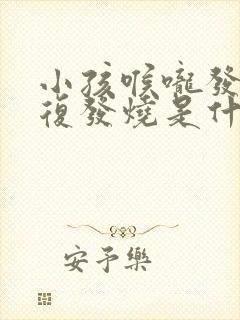 小孩喉嚨發
復發燒是什
安予樂